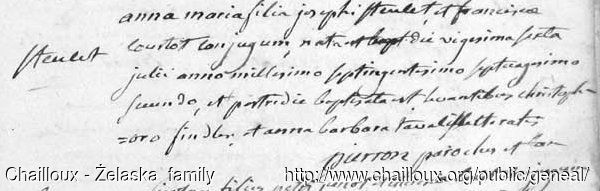 anna maria filia josephi steulet, et francisca
steulet
courtot conjugum, nata est die vigesima sexta
julii anno millesimo septingentesimo septuagesimo
secundo, et postridie baptisata est levantibus christoph-
=oro findler, et anna barbara
pierron parochus et
Chailloux - Želaska family http://www.chailloux.org/public/geneal/
filius